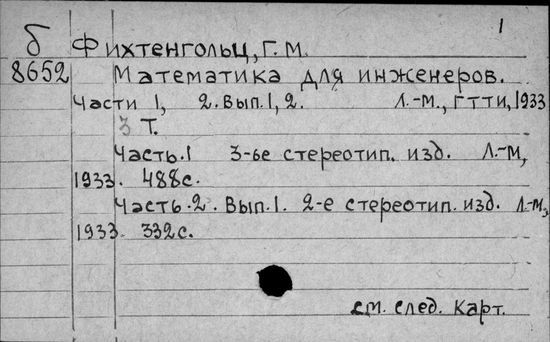 1
б Фихтенгольц, Г. М.
8652 Математика для инженеров.
Части 1, 2. Вып. 1, 2. Л.-М., ГТТИ, 1933
3 т.
Часть.1 3-ье стереотип. изд. Л.-М,
1933. 488с.
Часть.2. Вып.1. 2-е стереотип. изд. Л-М,
1933. 332с.
см. след. карт.